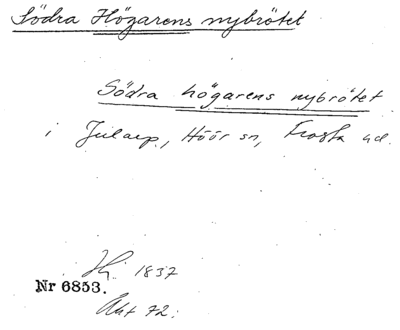 Södra Högarens nybrötet
Södra högarens nybrötet
i Julaep, Höör sn, Frosta hd.
1837
Nr 6853.
Akt 72.